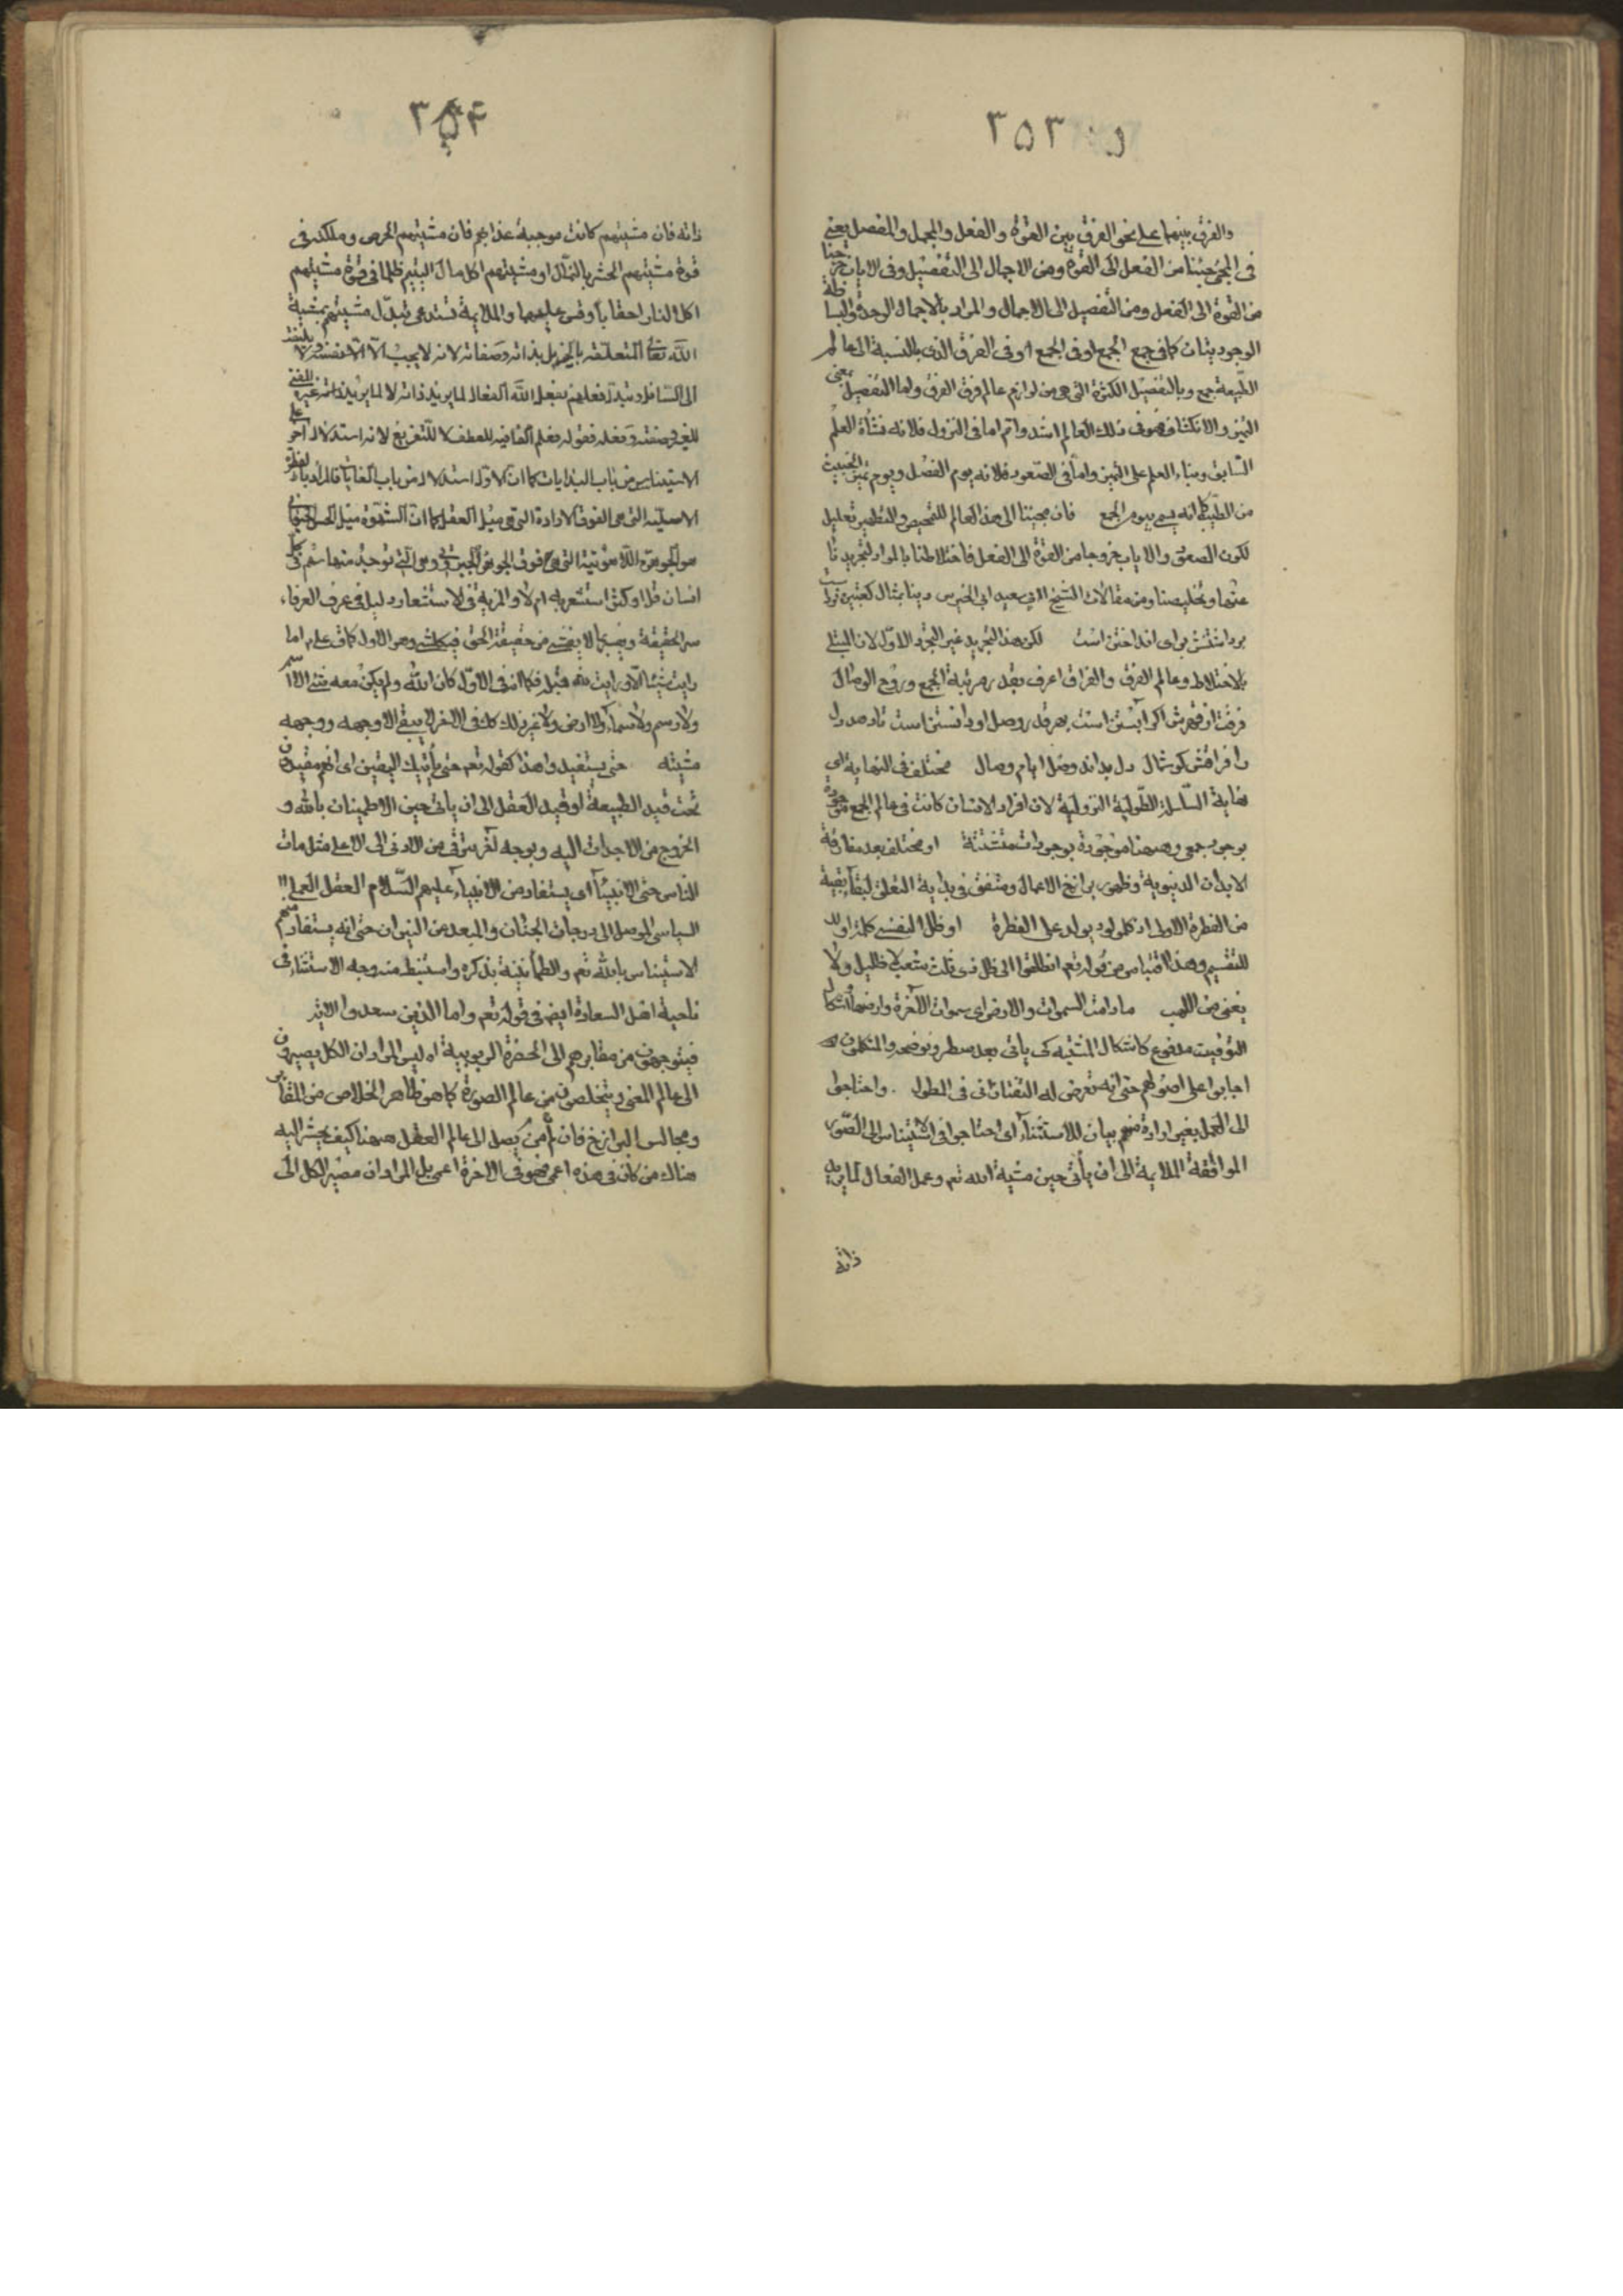 ٣٥٣
والفرق بينهما على نحو الفرق بين القوة والفعل والمجمل والمفصل يعنى
فى المجئ جئنا من الفعل الى القوة ومن الاجمال الى التفصيل وفى الاياب خرجنا
من القوة الى الفعل ومن التفصيل الى الاجمال والمراد بالاجمال الوحدة والبساطة
الوجوديتان كما فى جمع الجمع او فى الجمع او فى الفرق الذى بالنسبة الى عالم
الطبيعة جمع وبالتفصيل الكثرة التى هى من لوازم عالم فرق الفرق واما التفصيل بمعنى
التميز والانكشاف فهو فى ذلك العالم اشد واتم اما فى النزول فلانه نشأة العلم
السابق وبناء العلم على التميز واما فى الصعود فلانه يوم الفصل ويوم تميز الخبيث
من الطيب كما انه يسمى بيوم الجمع فان مجيئنا الى هذا العالم للتمحيص والتطهير تعليل
لكون الصعود والاياب خروجا من القوة الى الفعل فاختلاطنا بالمواد لتجريدنا
عنها وتخليصنا ومن مقالات الشيخ ابى سعيد ابى الخير س دينا بمثال كعبتين نرد است
برداشتنش براى انداختن است لكن هذا التجريد غير التجرد الاول لان المبتلى
بالاختلاط وعالم الفرق والفراق اعرف بقدر مرتبة الجمع وروح الوصال
فرقت از قهرش اگر آبستن است بهر قدر وصل او دانستن است تا دهد دل
را فراقش گوشمال دل بداند وصل ايام وصال مختلف فى النهاية اى
نهاية السلسلة الطولية النزولية لان افراد الانسان كانت فى عالم الجمع موجودة
بوجود جمعى وههنا موجودة بوجودات متشتتة او مختلف بعد مفارقة
الابدان الدنيوية وظهور برازخ الاعمال ومتفق فى بداية التعلق لبقاء بقية
من الفطرة الاولى اذ كل مولود يولد على الفطرة او ظل النفس كلمة او
للتقسيم وهذا اقتباس من قوله تعم انطلقوا الى ظل ذى ثلث شعب لا ظليل ولا
يغنى من اللهب ما دامت السموات والارض اى سموات الآخرة وارضها واشكال
التوقيت مدفوع كاشكال المشية كما ياتى بعد سطر ونوضحه والمتكلمون
اجابوا على اصولهم حتى انه تعرض له التفتازانى فى المطول . واحتاجوا
الى العمل بغير ارادة منهم بيان للاستثناء اى احتاجوا فى استيناس الى الصور
الموافقة الملايمة الى ان يأتى حين مشية الله تعم وعمل الفعال لما يريد
ذاته
٣٥۴
ذاته فان مشيتهم كانت موجبة عذابهم فان مشيتهم الحرص وملكته فى
قوة مشيتهم الحشر بالنمال او مشيتهم اكل مال اليتيم ظلما فى قوة مشيتهم
اكل النار احقابا وقس عليهما والملايمة تستدعى تبدل مشيتهم بمشية
الله تعالى المتعلقة بالخير بل بذاته وصفاته لانه لا يحب الا نفسه ولا يلتفت
الى السافل وتبدل فعلهم بفعل الله الفعال لما يريد ذاته لا لما يريد ذات غيره
للغير صفته وفعله فقوله فعلم الفا فيه للعطف لا للتفريع لانه استدلال آخر على
الاستيناس من باب البدايات كما ان الاول استدلال من باب الغايات
الاصلية التى هى الفوق الارادة التى هى ميل العقل كما ان الشهوة ميل الحس
انسان قل او كثر استشعر به ام لا وا فى الاستشعار دليل فى عرف العرفاء
سر الحقيقة ما لا يفشى من حقيقة الحق فى كل شئ وهو الاول كما فى على ع ما
رايت شيئا الا ورايت الله قبله فكما انه فى الاول كان الله ولم يكن معه شئ لا اسم
ولا رسم ولا سماء ولا ارض ولا غير ذلك كك فى الاخر لا يبقى الا وجهه ووجهه
مشيته حتى يستفيد وهذا كقوله تعم حتى يأتيك اليقين اى انهم مقيدون
تحت قيد الطبيعة او قيد العقل الى ان ياتى حين الاطمينان بالله و
الخروج من الاجداث اليه وبوجه آخر يترقى من الادنى الى الاعلى مثل مات
الناس حتى الانبياء اى يستفاد من الانبياء عليهم السلام العقل العملى
السياسى الموصل الى درجات الجنان والمبعد عن النيران حتى انه يستفاد منهم
الاستيناس بالله تعم والطمأنينة بذكره واستنبط منه وجه الاستثناء فى
ناحية اهل السعادة ايضا فى قوله تعم واما الذين سعدوا الاية
فيتوجهون من مقابرهم الى الحضرة الربوبية اه ليس المراد ان الكل يصيرون
الى عالم المعنى ويتخلصون من عالم الصورة كما هو ظاهر الخلاص من المقابر
ومجالس البرازخ فان من لم يصل الى عالم العقل ههنا كيف يحشر اليه
هناك من كان فى هذه اعمى فهو فى الاخرة اعمى بل المراد ان مصير الكل الى